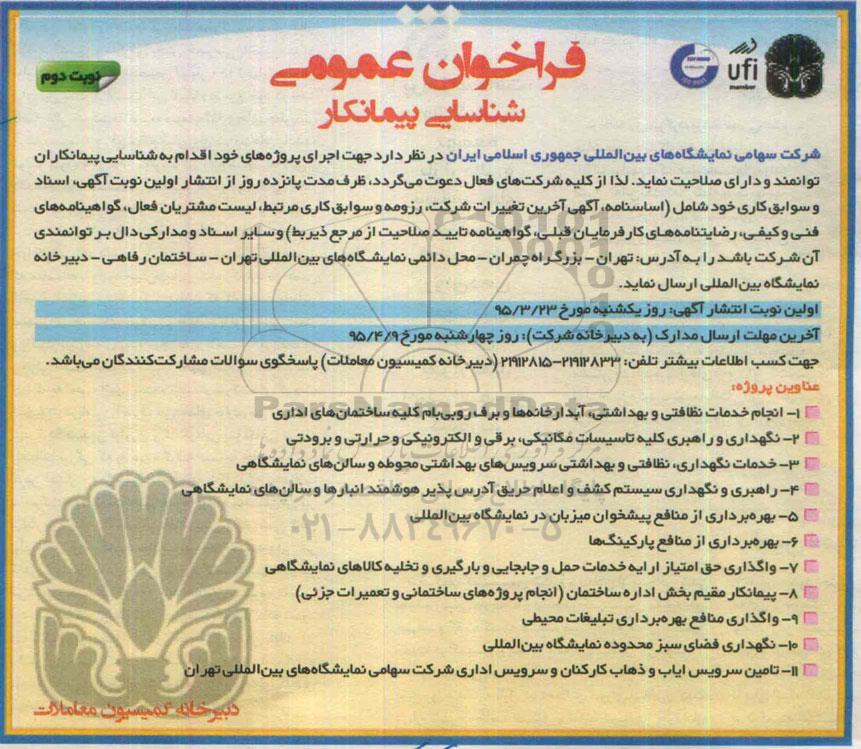 فراخوان عمومی
شناسایی پیمانکار
نوبت دوم
ufi
member
شرکت سهامی نمایشگاه‌های بین‌المللی جمهوری اسلامی ایران در نظر دارد جهت اجرای پروژه‌های خود اقدام به شناسایی پیمانکاران
توانمند و دارای صلاحیت نماید. لذا از کلیه شرکت‌های فعال دعوت می‌گردد، ظرف مدت پانزده روز از انتشار اولین نوبت آگهی، اسناد
و سوابق کاری خود شامل (اساسنامه، آگهی آخرین تغییرات شرکت، رزومه و سوابق کاری مرتبط، لیست مشتریان فعال، گواهینامه‌های
فنی و کیفی، رضایتنامه‌های کارفرمایان قبلی، گواهینامه تایید صلاحیت از مرجع ذیربط) و سایر اسناد و مدارکی دال بر توانمندی
آن شرکت باشد را به آدرس: تهران – بزرگراه چمران – محل دائمی نمایشگاه‌های بین‌المللی تهران – ساختمان رفاهی – دبیرخانه
نمایشگاه بین‌المللی ارسال نماید.
اولین نوبت انتشار آگهی: روز یکشنبه مورخ ۹۵/۳/۲۳
آخرین مهلت ارسال مدارک (به دبیرخانه شرکت): روز چهارشنبه مورخ ۹۵/۴/۹
جهت کسب اطلاعات بیشتر تلفن: ۲۱۹۱۲۸۳۳–۲۱۹۱۲۸۱۵ (دبیرخانه کمیسیون معاملات) پاسخگوی سوالات مشارکت‌کنندگان می‌باشد.
عناوین پروژه:
۱– انجام خدمات نظافتی و بهداشتی، آبدارخانه‌ها و برف روبی‌بام کلیه ساختمان‌های اداری
۲– نگهداری و راهبری کلیه تاسیسات مکانیکی، برقی و الکترونیکی و حرارتی و برودتی
۳– خدمات نگهداری، نظافتی و بهداشتی سرویس‌های بهداشتی محوطه و سالن‌های نمایشگاهی
۴– راهبری و نگهداری سیستم کشف و اعلام حریق آدرس پذیر هوشمند انبارها و سالن‌های نمایشگاهی
۵– بهره‌برداری از منافع پیشخوان میزبان در نمایشگاه بین‌المللی
۶– بهره‌برداری از منافع پارکینگ‌ها
۷– واگذاری حق امتیاز ارایه خدمات حمل و جابجایی و بارگیری و تخلیه کالاهای نمایشگاهی
۸– پیمانکار مقیم بخش اداره ساختمان (انجام پروژه‌های ساختمانی و تعمیرات جزئی)
۹– واگذاری منافع بهره‌برداری تبلیغات محیطی
۱۰– نگهداری فضای سبز محدوده نمایشگاه بین‌المللی
۱۱– تامین سرویس ایاب و ذهاب کارکنان و سرویس اداری شرکت سهامی نمایشگاه‌های بین‌المللی تهران
دبیرخانه کمیسیون معاملات
ParsNamadData
۰۲۱–۸۸۳۴۹۶۷۰–۵